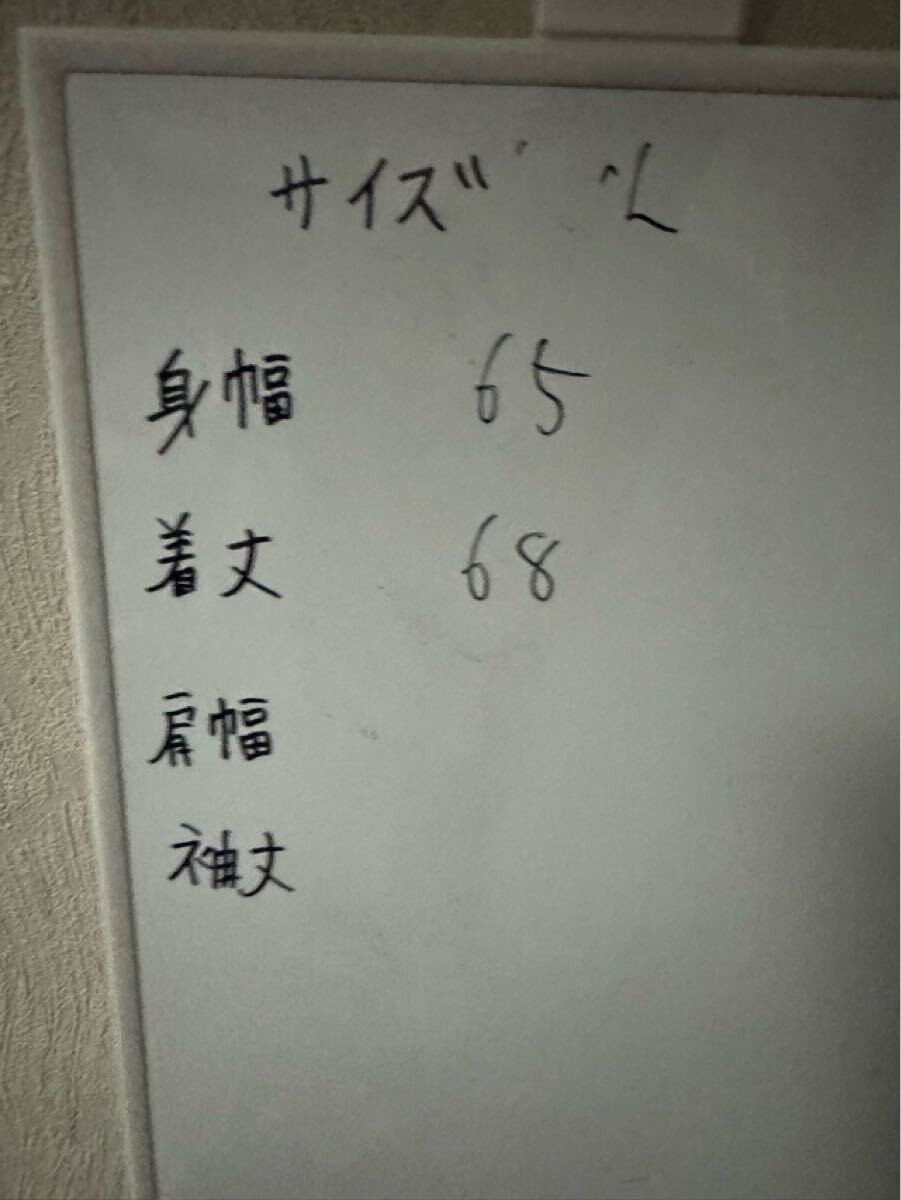 サイズ L
身幅 65
着丈 68
肩幅
袖丈